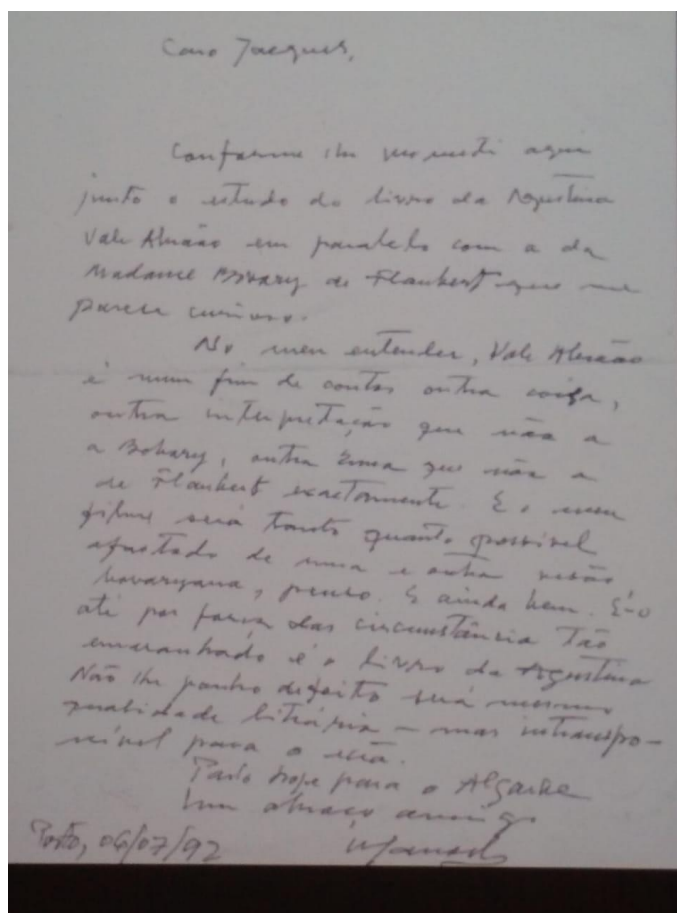 Caro Jacques,
Conforme lhe prometi aqui
junto o estudo do livro da Agustina
Vale Abraão em paralelo com a da
Madame Bovary de Flaubert que me
parece curioso.
No meu entender, Vale Abraão
é num fim de contas outra coisa,
outra interpretação que não a
a Bovary, outra Ema que não a
de Flaubert exactamente. E o meu
filme será tanto quanto possível
afastado de uma e outra versão
bovaryana, penso. E ainda bem. É-o
até por força das circunstância tão
emaranhado é o livro da Agustina
Não lhe ponho defeito será mesmo
qualidade literária - mas intranspo-
nível para o
Parto hoje para o Algarve
Um abraço amigo
Porto, 06/07/92